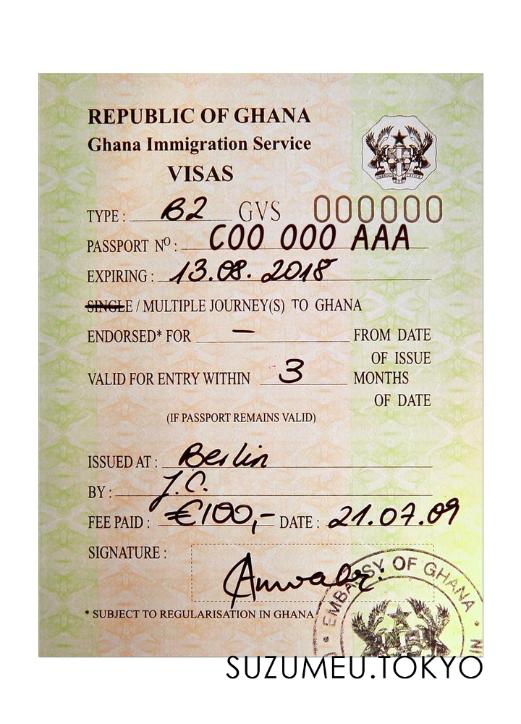 REPUBLIC OF GHANA
Ghana Immigration Service
VISAS
TYPE : B2 GVS 000000
PASSPORT Nº : C00 000 AAA
EXPIRING : 13.08.2018
SINGLE / MULTIPLE JOURNEY(S) TO GHANA
ENDORSED* FOR — FROM DATE
OF ISSUE
VALID FOR ENTRY WITHIN 3 MONTHS
OF DATE
(IF PASSPORT REMAINS VALID)
ISSUED AT : Berlin
BY : J.C.
FEE PAID : €100,- DATE : 21.07.09
SIGNATURE :
* SUBJECT TO REGULARISATION IN GHANA
EMBASSY OF GHANA
SUZUMEU.TOKYO